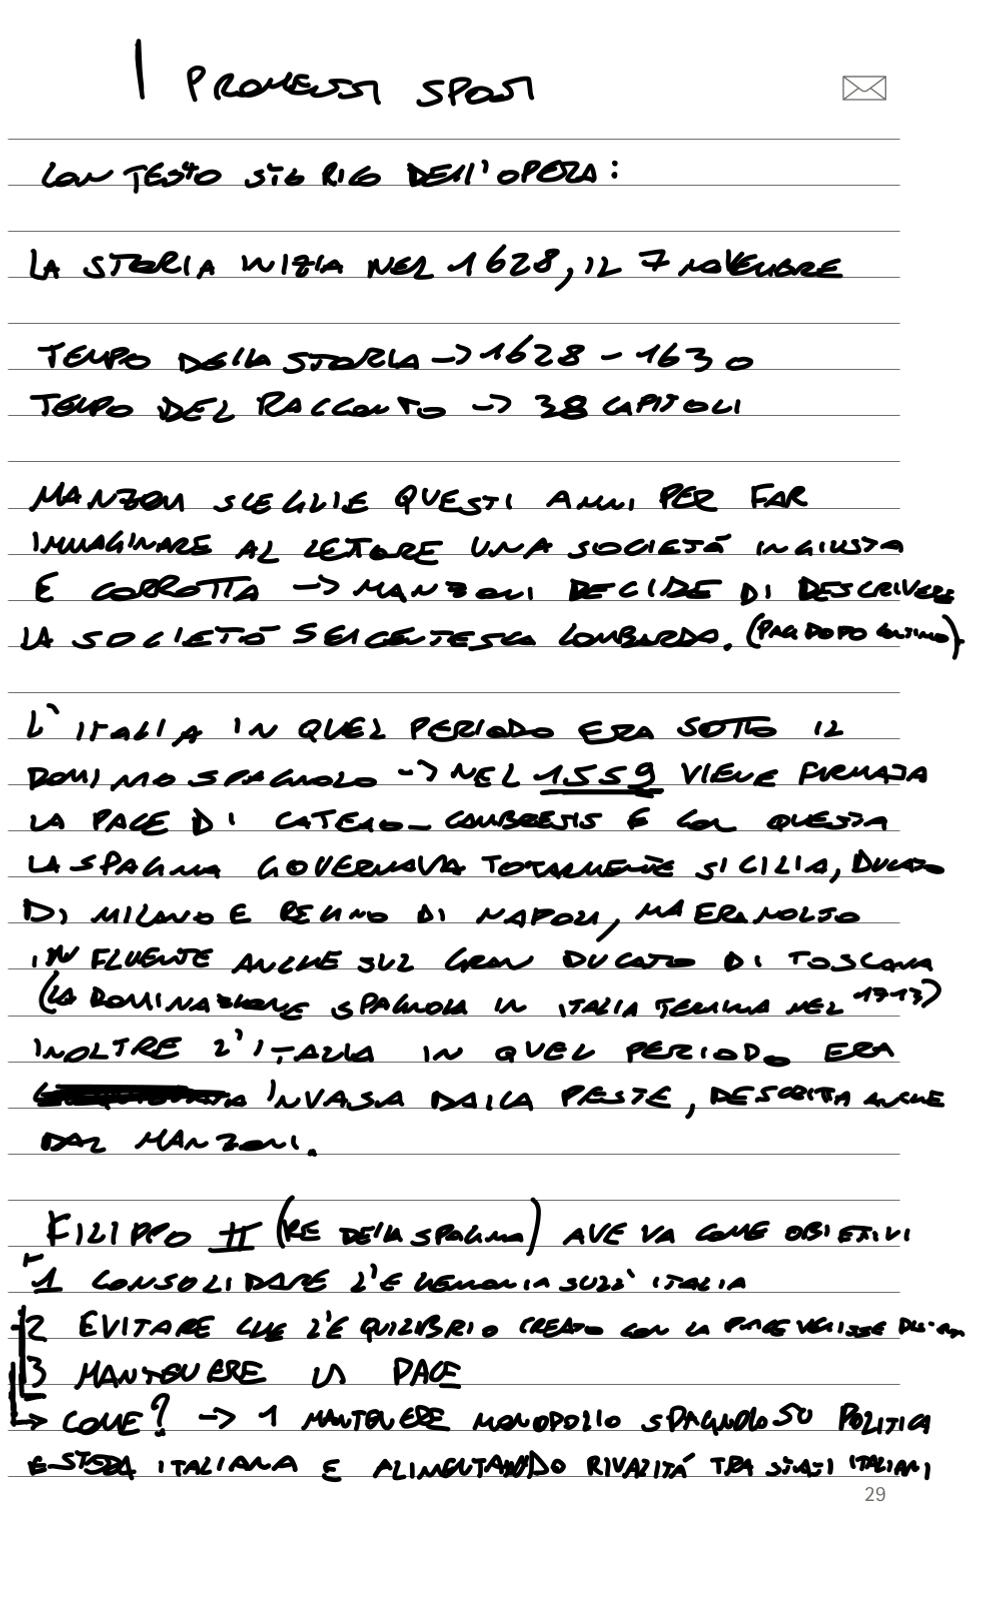 I PROMESSI SPOSI
CONTESTO STORICO DELL'OPERA:
LA STORIA INIZIA NEL 1628, IL 7 NOVEMBRE
TEMPO DELLA STORIA -> 1628 - 1630
TEMPO DEL RACCONTO -> 38 CAPITOLI
MANZONI SCEGLIE QUESTI ANNI PER FAR
IMMAGINARE AL LETTORE UNA SOCIETÁ INGIUSTA
E CORROTTA -> MANZONI DECIDE DI DESCRIVERE
LA SOCIETÁ SEICENTESCA LOMBARDA. (PAG DOPO ULTIMO).
L'ITALIA IN QUEL PERIODO ERA SOTTO IL
DOMINIO SPAGNOLO -> NEL 1559 VIENE FIRMATA
LA PACE DI CATEAU-CAMBRESIS E CON QUESTA
LA SPAGNA GOVERNAVA TOTALMENTE SICILIA, DUCATO
DI MILANO E REGNO DI NAPOLI, MA ERA MOLTO
INFLUENTE ANCHE SUL GRAN DUCATO DI TOSCANA
(LA DOMINAZIONE SPAGNOLA IN ITALIA TERMINA NEL 1713)
INOLTRE L'ITALIA IN QUEL PERIODO ERA
INVASA DALLA PESTE, DESCRITTA ANCHE
DAL MANZONI.
FILIPPO II (RE DELLA SPAGNA) AVEVA COME OBIETIVI
1 CONSOLIDARE L'EGEMONIA SULL'ITALIA
2 EVITARE CHE L'EQUILIBRIO CREATO CON LA PACE VENISSE
3 MANTENERE LA PACE
-> COME? -> 1 MANTENERE MONOPOLIO SPAGNOLO SU POLITICA
ESTERA ITALIANA E ALIMENTANDO RIVALITÁ TRA STATI ITALIANI
29